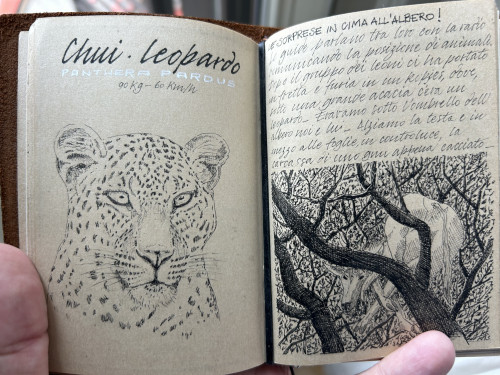 Chui · Leopardo
PANTHERA PARDUS
90 kg - 60 km/h
E SORPRESE IN CIMA ALL'ALBERO!
guide parlano tra loro con la radio
comunicando la posizione di animali
dopo il gruppo dei leoni ci ha portato
in fretta e furia in un kopjes, dove,
sotto una grande acacia c'era un
leopardo_ Eravamo sotto l'ombrello dell'
albero noi e lui_ Alziamo la testa e in
mezzo alle foglie, in controluce, la
carcassa di uno gnu appena cacciato_